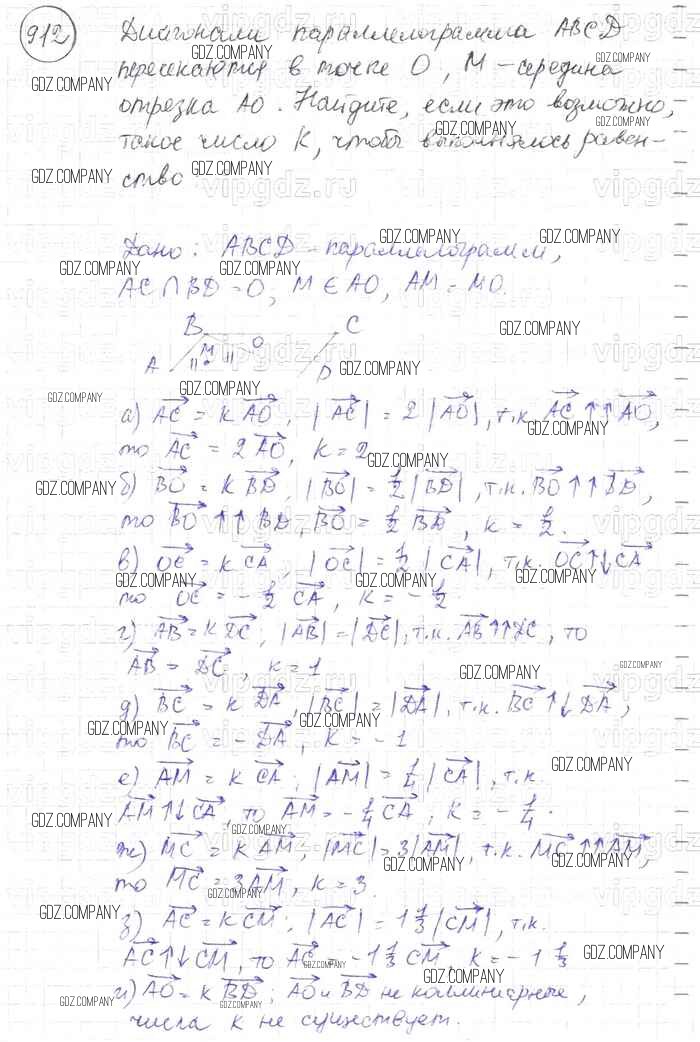 912
Диагонали параллелограмма ABCD
пересекаются в точке O, M – середина
отрезка AO. Найдите, если это возможно,
такое число K, чтобы выполнялось равен-
ство
Дано: ABCD – параллелограмм,
AC ∩ BD = O, M ∈ AO, AM = MO.
B C
M O
A D
а) AC = k AO, |AC| = 2 |AO|, т.к. AC ↑↑ AO,
то AC = 2 AO, k = 2
б) BO = k BD, |BO| = 1/2 |BD|, т.к. BO ↑↑ BD,
то BO ↑↑ BD, BO = 1/2 BD, k = 1/2.
в) OC = k CA, |OC| = 1/2 |CA|, т.к. OC ↑↓ CA
то OC = - 1/2 CA, k = - 1/2
г) AB = k DC; |AB| = |DC|, т.к. AB ↑↑ DC, то
AB = DC, k = 1
д) BC = k DA, |BC| = |DA|, т.к. BC ↑↓ DA,
то BC = - DA, k = -1
е) AM = k CA; |AM| = 1/4 |CA|, т.к.
AM ↑↓ CA, то AM = - 1/4 CA, k = - 1/4.
ж) MC = k AM; |MC| = 3 |AM|, т.к. MC ↑↑ AM,
то MC = 3 AM, k = 3.
з) AC = k CM; |AC| = 1 1/3 |CM|, т.к.
AC ↑↓ CM, то AC = -1 1/3 CM, k = -1 1/3
и) AO = k BD; AO и BD не коллинеарные,
числа k не существует.
GDZ.COMPANY
vipgdz.ru